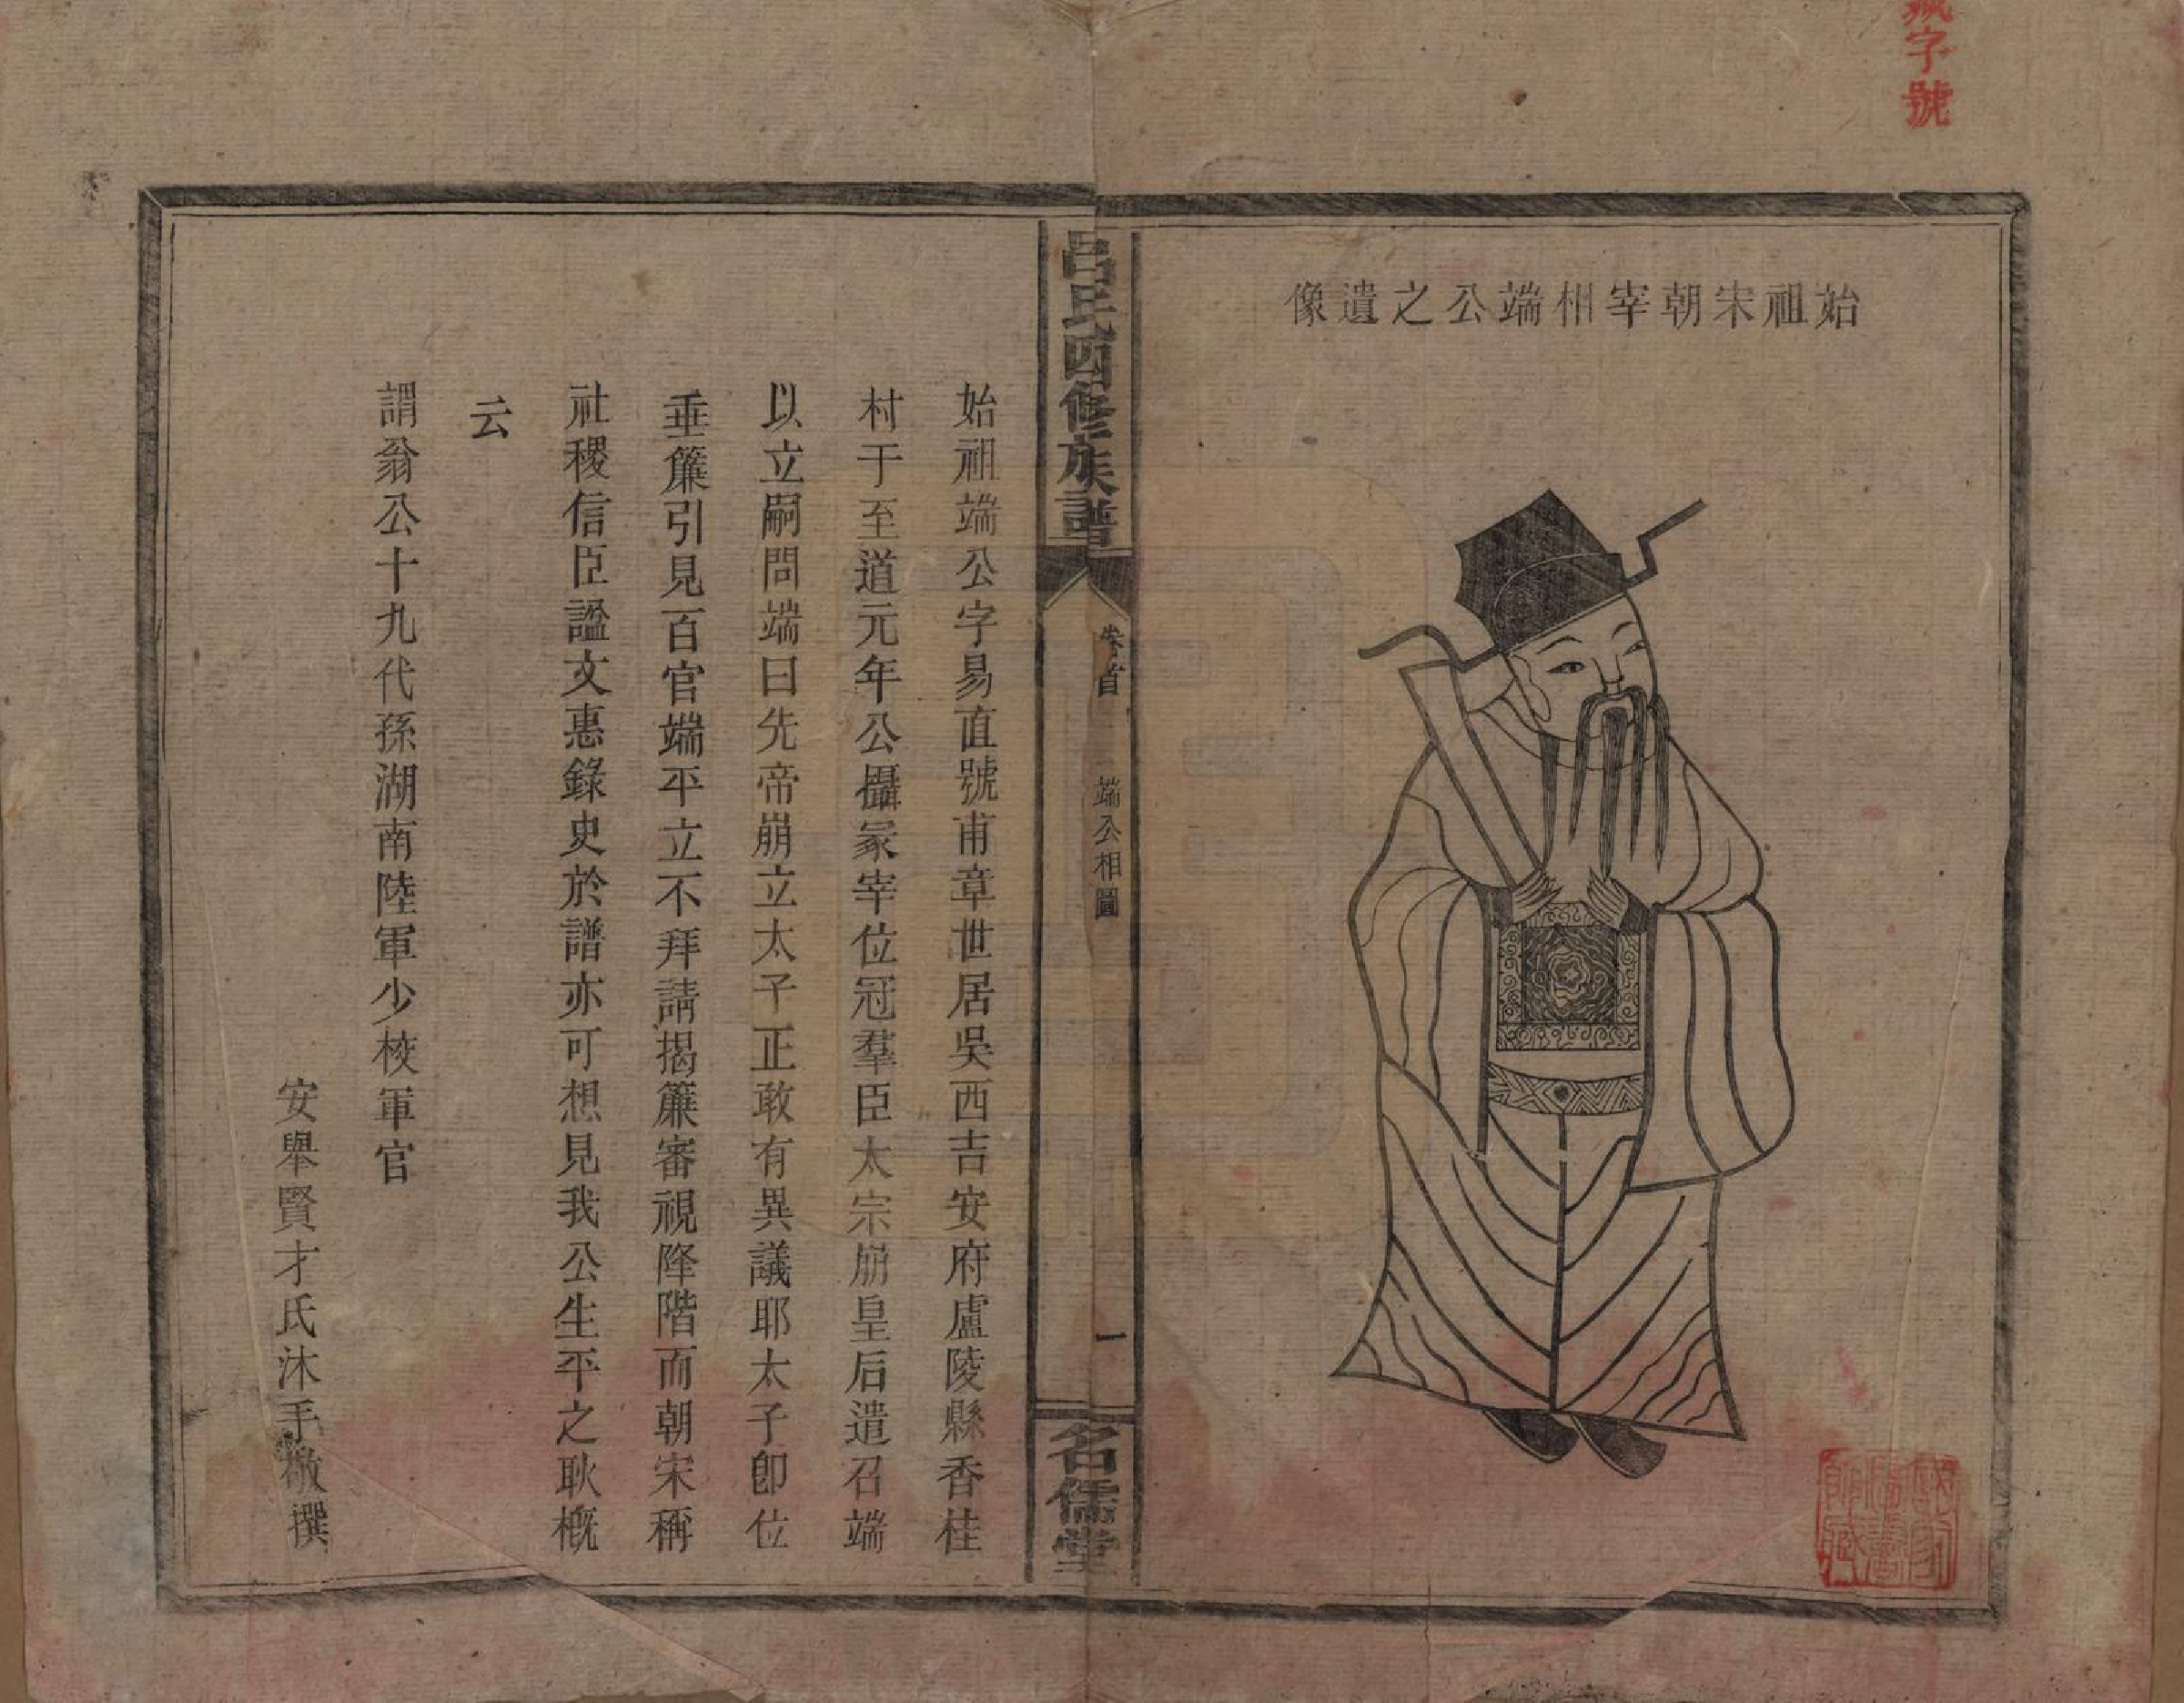 字號
始祖宋朝宰相端公之遺像
呂氏四修族譜
卷首
端公相圖
一
名儒堂
始祖端公字易直號甫章世居吳西吉安府盧陵縣香桂
村于至道元年公攝冢宰位冠羣臣太宗崩皇后遣召端
以立嗣問端曰先帝崩立太子正敢有異議耶太子卽位
垂簾引見百官端平立不拜請揭簾審視降階而朝宋稱
社稷信臣謚文惠錄史於譜亦可想見我公生平之耿概
云
謂翁公十九代孫湖南陸軍少校軍官
安舉賢才氏沐手敬撰